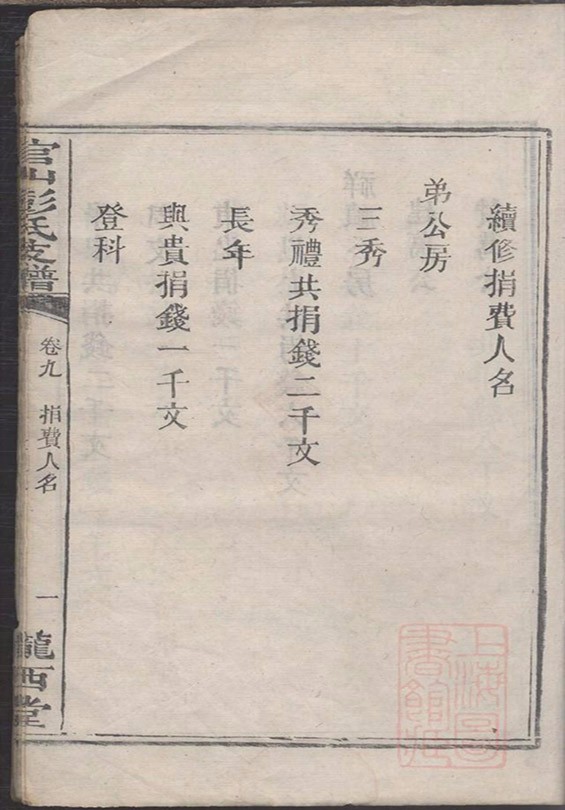 續修捐費人名
弟公房
三秀
秀禮共捐錢二千文
長年
與貴捐錢一千文
登科
官山彭氏支譜
卷九 捐費人名
一
隴西堂
上海圖
書館藏